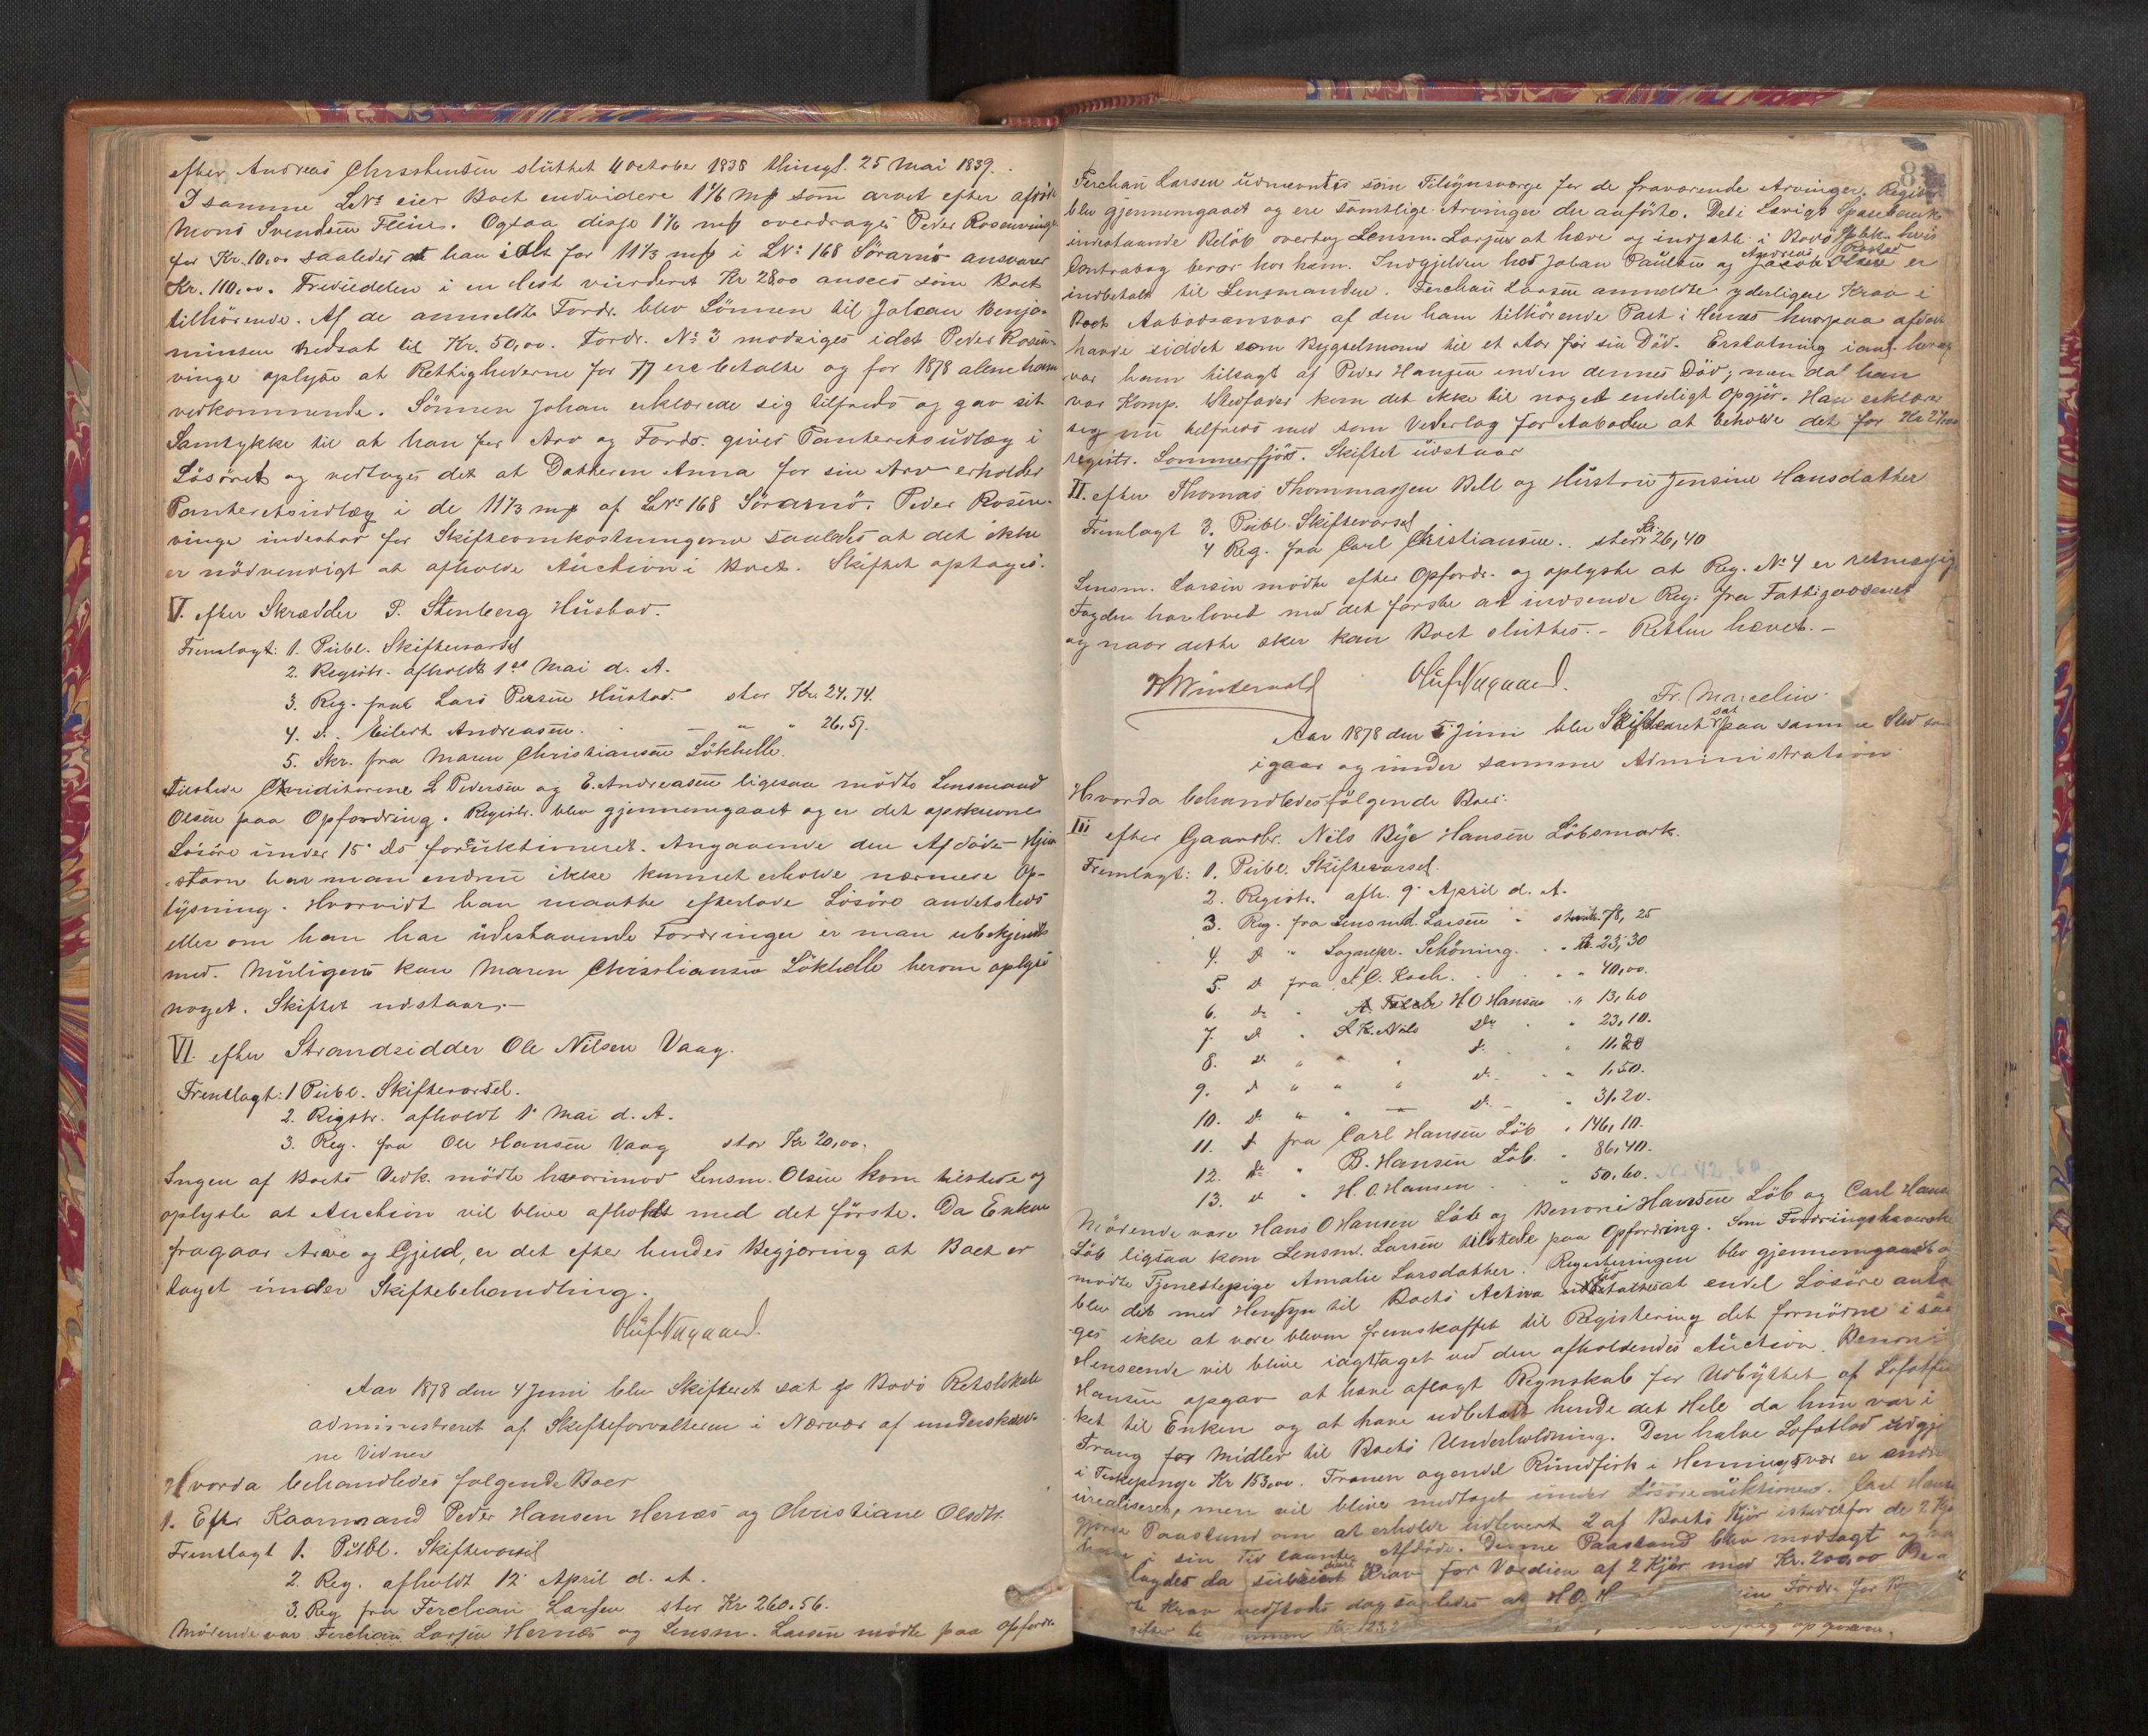 efter Andreas Christensen sluttet 4 October 1838 thingl. 25 Mai 1839.
I samme LNo eier Boet endvidere 1 1/6 mp som arvet efter afdöde
Mons Svendsen Fleines. Ogsaa disse 1 1/6 mp overdrages Peder Rosenvinge
for Kr. 10,00 saaledes at han i Alt for 11 1/3 mp i LNo 168 Sörarnö ansvarer
Kr. 110,00. Trediedelen i en Hest vurderet Kr 28,00 ansees som Boet
tilhörende. Af de anmeldte Fordr. blev Lönnen til Johan Benja-
minsen nedsat til Kr. 50,00. Fordr. No 3 modsiges idet Peder Rosen-
vinge oplyste at Rettighederne for 77 ere betalte og for 1878 alene ham
vedkommende. Sönnen Johan erklærede sig tilfreds og gav sit
Samtykke til at han for Arv og Fordr. gives Panteretsudlæg i
Lösöret og vedtages det at Datteren Anna for sin Arv erholder
Panteretsudlæg i de 11 1/3 mp af LNo 168 Sörarnö. Peder Rosen-
vinge indestaar for Skifteomkostningerne saaledes at det ikke
er nödvendigt at afholde Auction i Boet. Skiftet optages.
V. efter Skrædder P. Stenberg Hustad.
Fremlagt: 1. Publ. Skiftevarsel
2. Registr. afholdt 1st Mai d. A.
3. Reg. fra Lars Persen Hustad stor Kr. 24,74.
4. d. Eilert Andreasen. - " " 26,57.
5. Skr. fra Maren Christiansen Lökhelle.
Tilstede Chreditorerne L Pedersen og E. Andreasen ligesaa mödte Lensmand
Olsen paa Opfordring. Registr. blev gjennemgaaet og er det opskrevne
Lösöre under 15. ds forauktioneret. Angaaende den Afdödes Hjem-
stavn har man endnu ikke kunnet erholde nærmere Op-
lysning. Hvorvidt han maatte efterlade Lösöre andetsteds
eller om han har udestaaende Fordringer er man ubekjendt
med. Muligens kan Maren Christiansen Lökhelle herom oplyse
noget. Skiftet udstaar.-
VI. efter Strandsidder Ole Nilsen Vaag.
Fremlagt: 1 Publ. Skiftevarsel.
2. Rigstr. afholdt 1. Mai d. A.
3. Reg. fra Ole Hansen Vaag stor Kr 20,00.
Ingen af Boets Vedk. mödte hvorimod Lensm. Olsen kom tilstede og
oplyste at Auction vil blive afholdt med det förste. Da Enken
fragaar Arv og Gjeld, er det efter hendes Begjæring at Boet er
taget under Skiftebehandling.
Oluf Aagaard.
Aar 1878 den 4 Juni blev Skifteret sat i Bodö Retslokale
administreret af Skifteforvalteren i Nærvær af underskrev-
ne Vidner
Hvorda behandledes fölgende Boer
1. Efter Kaarmand Peder Hansen Hernæs og Christiane Olsdtr.
Fremlagt 1. Publ. Skiftevarsel
2. Reg. afholdt 12. April d. A.
3. Reg fra Ferchau Larsen stor Kr 260.56.
Mödende var Ferchau Larsen Hernæs og Lensm. Larsen mödte paa Opfordr.
Ferchau Larsen udnævntes som Tilsynsværge for de fraværende Arvinger. Registr.
blev gjennemgaaet og ere samtlige Arvinger der anförte. Det i Sparebank
indestaaende Belöb overtog Lensm. Larsen at hæve og indsætte i Bodö Spbk. hvis
Contrabog beror hos ham. Indgjelden hos Johan Paulsen og Andreas Jacob Olsen er
indbetalt til Lensmanden. Ferchau Larsen anmeldte yderligere Krav i
Boet Aabodsansvar af den ham tilhörende Part i Hernæs hvorpaa afdöde
havde siddet som Bygselmand til et Aar för sin Död. Erstatning i anl. herav
var ham tilsagt af Peder Hansen inden dennes Död; men da han
var Komp. Stedfader kom det ikke til noget endeligt Opgjör. Han erklærer
sig nu tilfreds med som Vederlag for Aaboden at beholde det for Kr 27,00
registr. Sommerfjös. Skiftet udstaar
II. efter Thomas Thommassen Bell og Hustru Jensine Hansdatter
Fremlagt 3. Publ. Skiftevarsel
4 Reg. fra Carl Christiansen.. stor Kr. 26,40
Lensm. Larsen mödte efter Opfordr. og oplyste at Reg. No 4 er retmessig
Fogden har lovet med det förste at indsende Reg. fra Fattigvæsenet
og naar dette sker kan Boet sluttes. - Retten hævet. -
Oluf Aagaard.
Fr. Marcelin
Aar 1878 den 5 Juni blev Skifteret sat paa samme Sted som
igaar og under samme Administration
Hvorda behandledes fölgende Boer:
III efter Gaardbr. Nils Bye Hansen Löbsmark.
Fremlagt: 1. Publ. Skiftevarsel.
2. Registr. afh. 9. April d. A.
3. Reg. fra Lensmd. Larsen " stor Kr. 78, 25
4. d " Sognepr. Schöning. . . 23,30
5. d fra A C. Koch. . . " 40,00.
6. dr " H O Hansen . " 13,60
7. d " Nils dr " 23,10.
8. d " " " d. " 11,20
9. d " " " d. - " 1,50.
10. d " " — d. - " 31,20.
11. d fra Carl Hansen Löb " 146,10.
12. dr " B. Hansen Löb. " 86,40.
13. d " H. O. Hansen . . " 50,60. No 42,60.
Mödende vare Hans O Hansen Löb og Benoni Hansen Löb og Carl Hans
Löb ligsaa kom Lensm. Larsen tilstede paa Opfordring. Som Fordringshaverske
mödte Tjenestepige Amalie Larsdatter. Registeringen blev gjennemgaaet og
blev det med Hensyn til Boets Activa at endel Lösöre anta
ges ikke at være bleven fremskaffet til Registering det fornödne i saa
Henseende vil blive iagttaget ved den afholdendes Auction. Benoni
Hansen opgav at have aflagt Regnskab for Udbyttet af Lofotfis
ket til Enken og at have udbetalt hende det Hele da hun var i
Trang for Midler til Boets Underholdning. Den halve Lofotlod udgjö
i Fiskepenge Kr 153,00. Tranen ogendel Rundfisk i Henningsvær er endnu
urealiseret, men vil blive medtaget under Lösöreauktionen. Carl Hans
gjorde Paastand om at erholde udleveret 2 af Boets Kjör istedetfor de 2 Kjö
han i sin Tid laante Afdöde. Denne Paastand blev modsagt og
da Krav for Værdien af 2 Kjör med Kr. 200,00
Krav vedstodes dog saaledes at H O. H